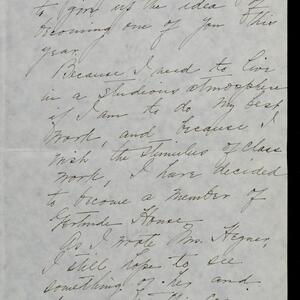 to give up the idea of
becoming one of you this
year.
Because I need to live
in a studious atmosphere
if I am to do my best
work, and because I
wish the stimulus of class
work, I have decided
to become a member of
Gertrude House.
As I wrote Mrs. Hegner,
I still hope to see
something of her and